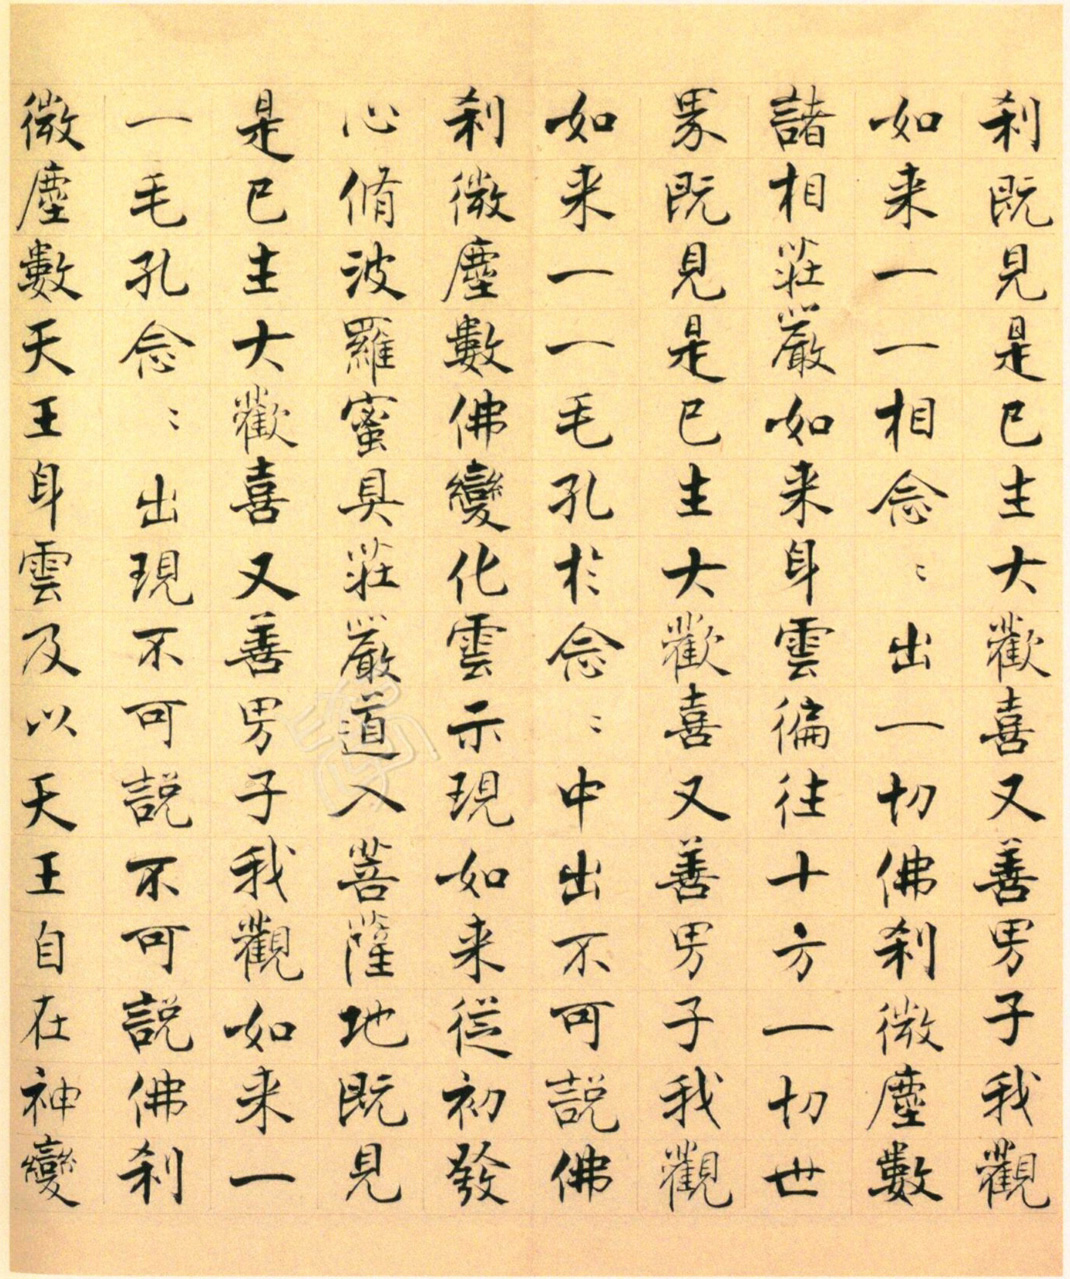 刹既見是已生大歡喜又善男子我觀
如来一一相念〻出一切佛刹微塵數
諸相莊嚴如来身雲徧往十方一切世
界既見是已生大歡喜又善男子我觀
如来一一毛孔於念〻中出不可說佛
刹微塵數佛變化雲示現如来從初發
心脩波羅蜜具莊嚴道入菩薩地既見
是已生大歡喜又善男子我觀如来一
一毛孔念〻出現不可說不可說佛刹
微塵數天王身雲及以天王自在神變